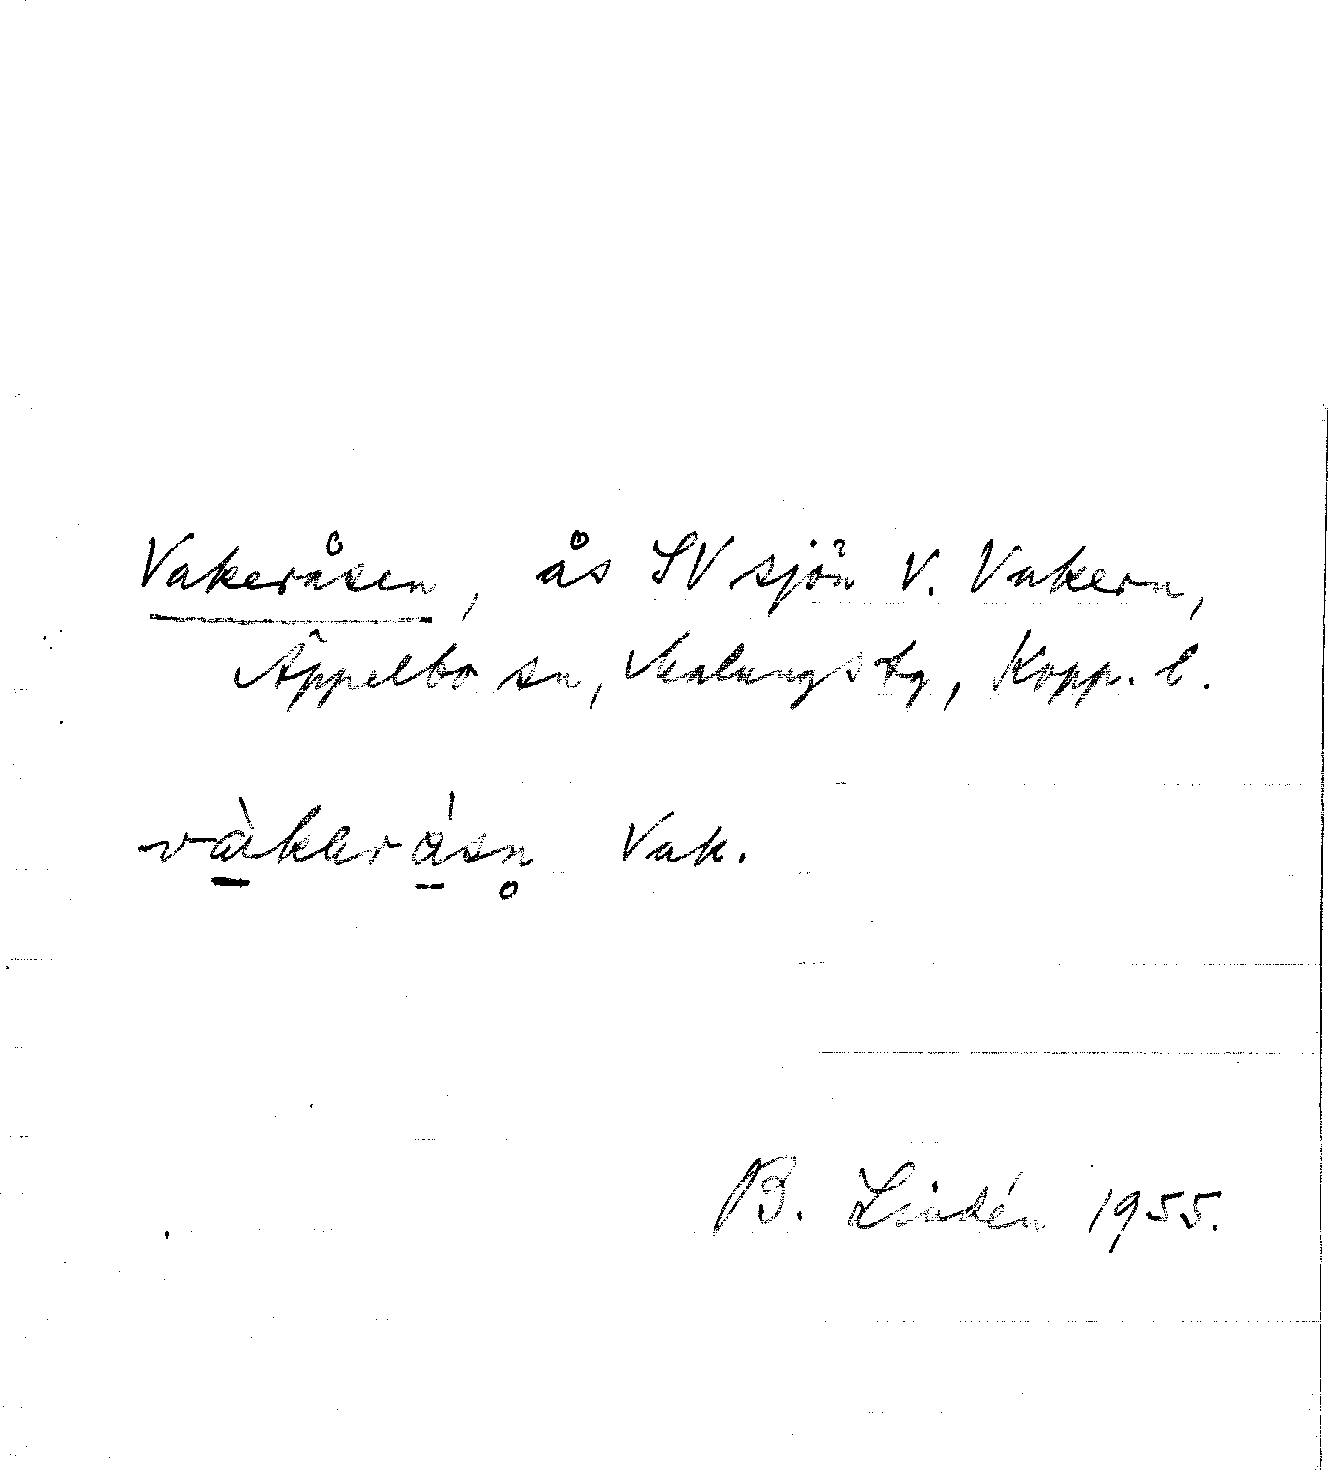 Vakeråsen, ås SV sjön V. Vakern,
Äppelbo sn, Malungs tg, Kopp. l.
vàkerásn Vak.
B. Lindén 1955.